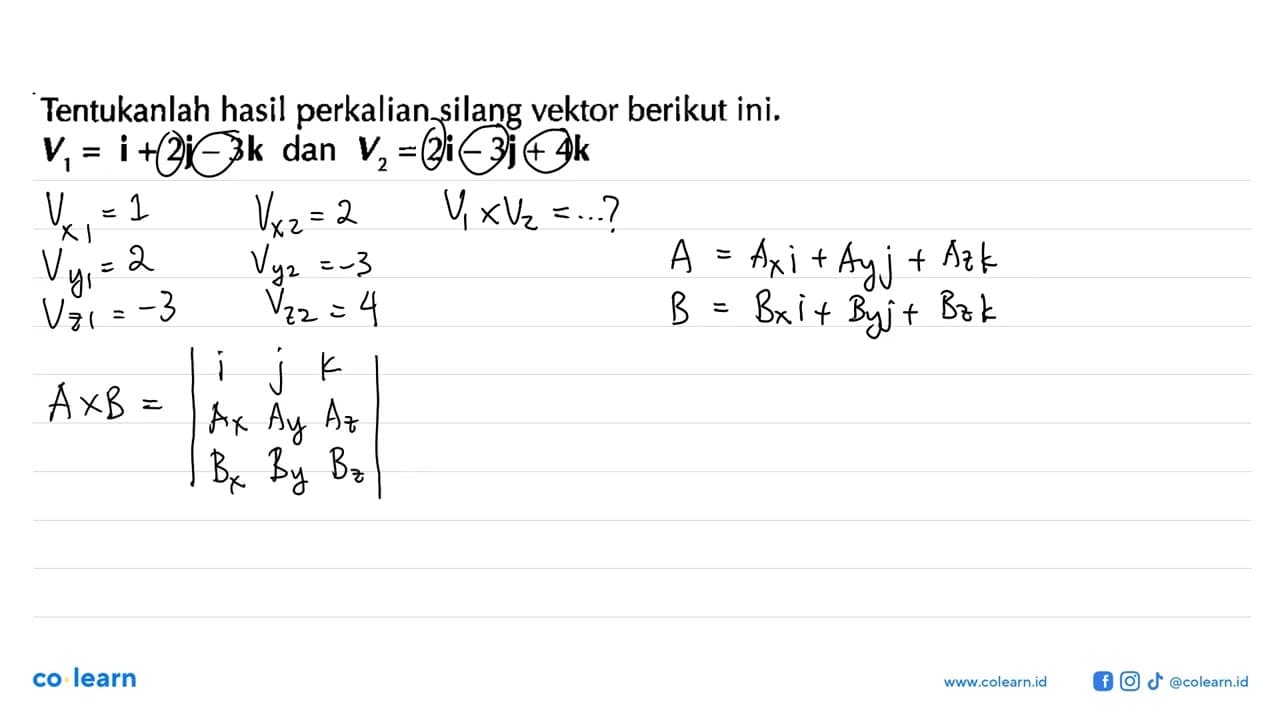 Tentukanlah hasil perkalian silang vektor berikut ini.
V₁ = i + 2j − 3k dan V₂ = 2i − 3j + 4k
Vx1 = 1 Vx2 = 2 V₁ × V₂ = ...?
Vy1 = 2 Vy2 = −3
Vz1 = −3 Vz2 = 4
A = Axi + Ayj + Azk
B = Bxi + Byj + Bzk
i j k
A × B =
Ax Ay Az
Bx By Bz
co learn
www.colearn.id @colearn.id